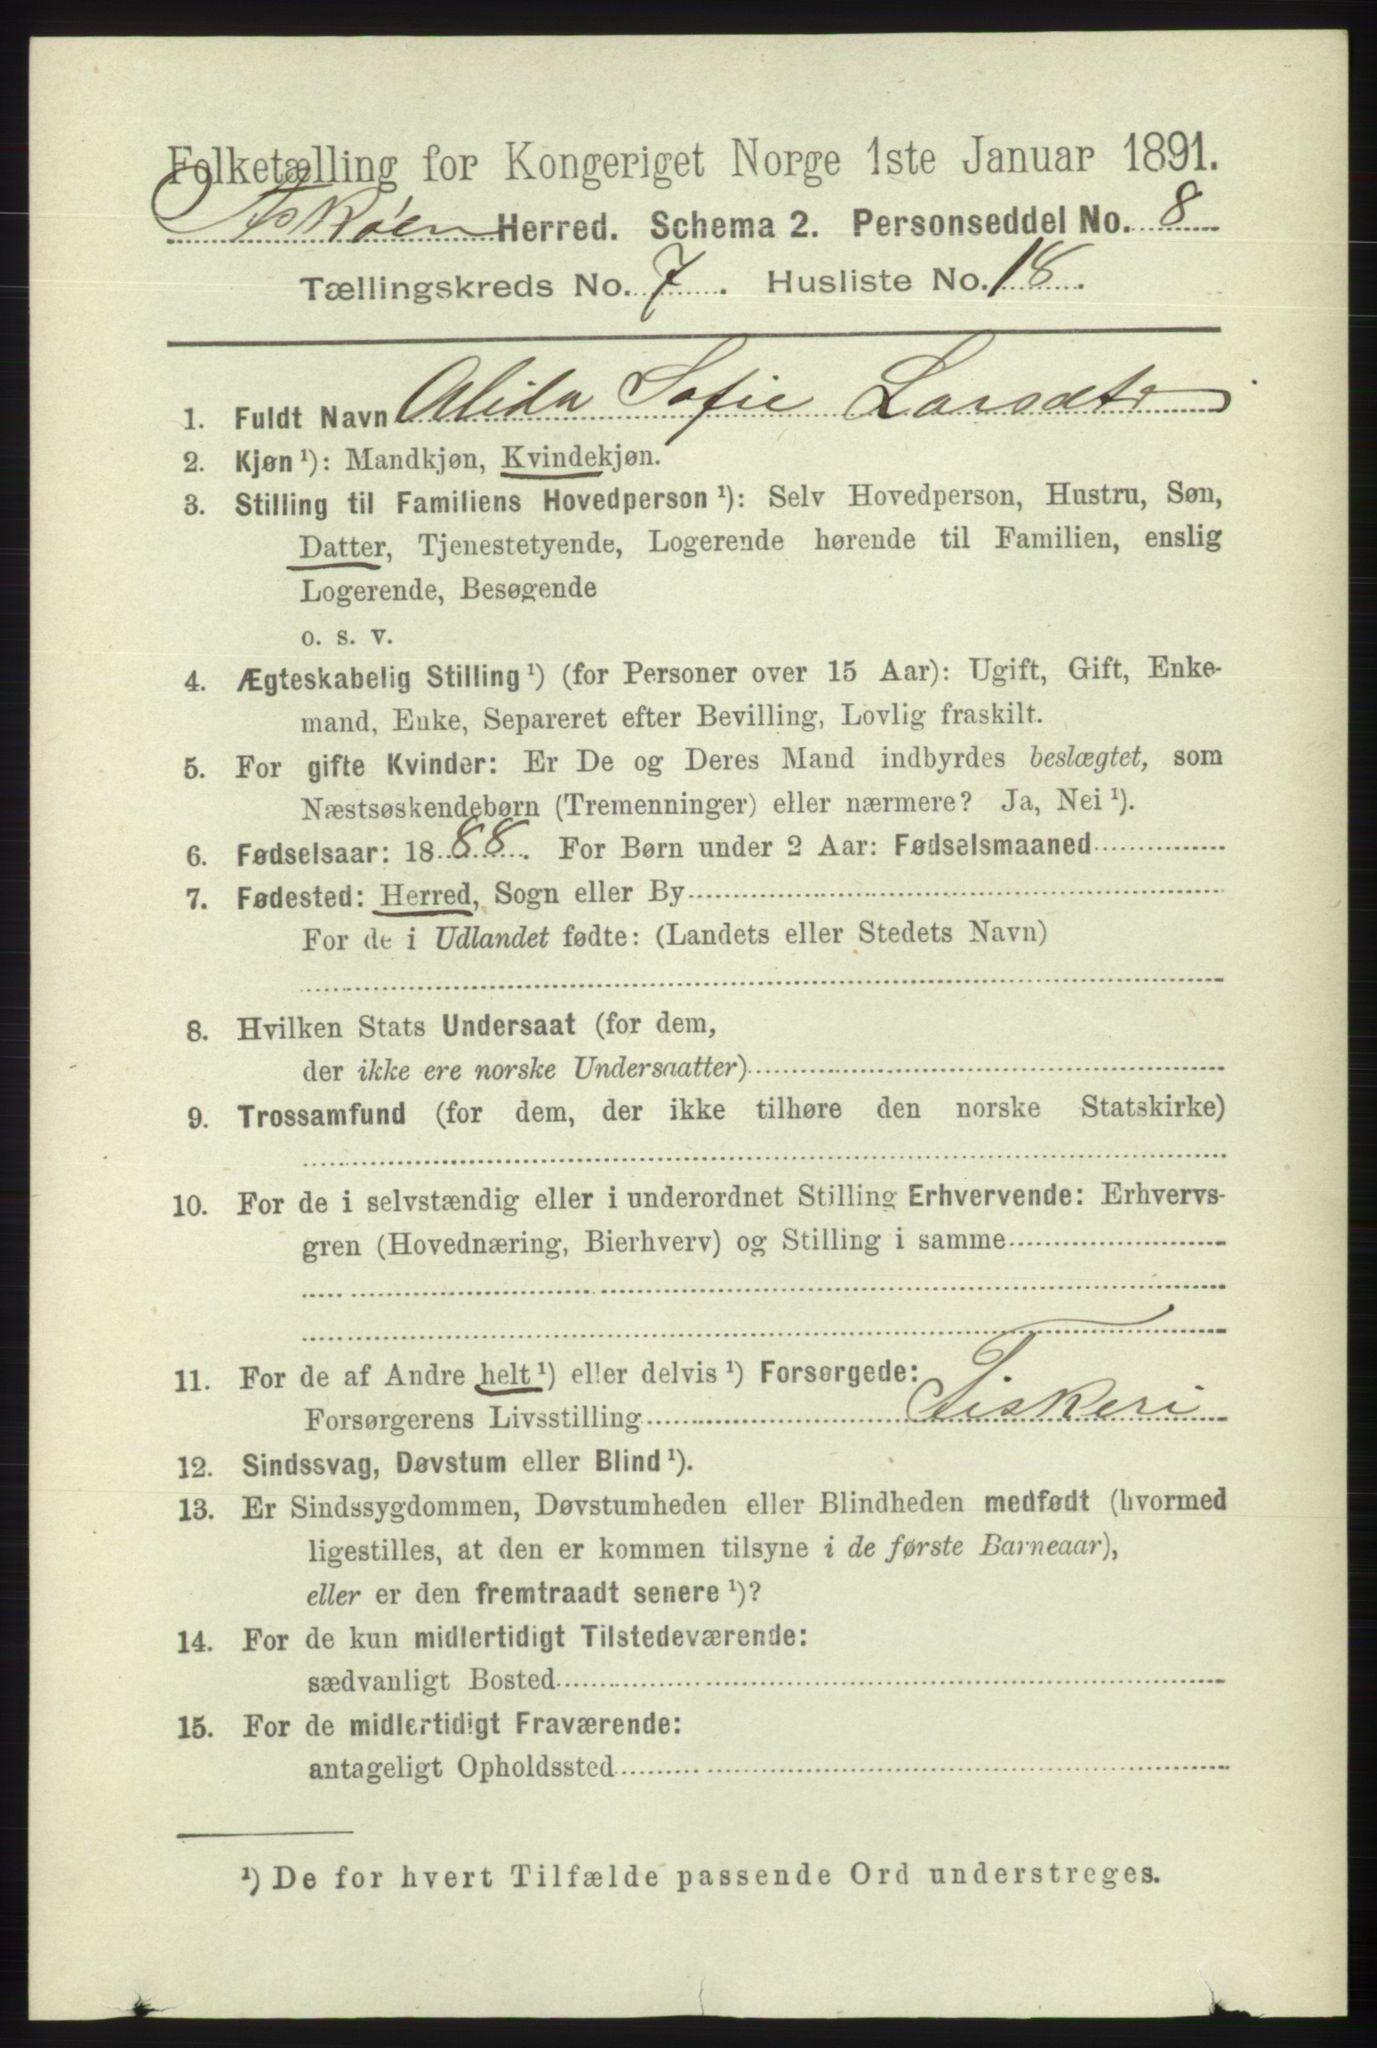 Folketælling for Kongeriget Norge 1ste Januar 1891.
Askøen Herred. Schema 2. Personseddel No. 8
Tællingskreds No. 7. Husliste No. 18.
1. Fuldt Navn Alida Sofie Larsdtr
2. Kjøn ¹): Mandkjøn, Kvindekjøn.
3. Stilling til Familiens Hovedperson ¹): Selv Hovedperson, Hustru, Søn,
Datter, Tjenestetyende, Logerende hørende til Familien, enslig
Logerende, Besøgende
o. s. v.
4. Ægteskabelig Stilling ¹) (for Personer over 15 Aar): Ugift, Gift, Enke-
mand, Enke, Separeret efter Bevilling, Lovlig fraskilt.
5. For gifte Kvinder: Er De og Deres Mand indbyrdes beslægtet, som
Næstsøskendebørn (Tremenninger) eller nærmere? Ja, Nei ¹).
6. Fødselsaar: 1888. For Børn under 2 Aar: Fødselsmaaned
7. Fødested: Herred, Sogn eller By
For de i Udlandet fødte: (Landets eller Stedets Navn)
8. Hvilken Stats Undersaat (for dem,
der ikke ere norske Undersaatter)
9. Trossamfund (for dem, der ikke tilhøre den norske Statskirke)
10. For de i selvstændig eller i underordnet Stilling Erhvervende: Erhvervs-
gren (Hovednæring, Bierhverv) og Stilling i samme
11. For de af Andre helt ¹) eller delvis ¹) Forsørgede:
Forsørgerens Livsstilling Fiskeri
12. Sindssvag, Døvstum eller Blind ¹).
13. Er Sindssygdommen, Døvstumheden eller Blindheden medfødt (hvormed
ligestilles, at den er kommen tilsyne i de første Barneaar),
eller er den fremtraadt senere ¹)?
14. For de kun midlertidigt Tilstedeværende:
sædvanligt Bosted
15. For de midlertidigt Fraværende:
antageligt Opholdssted
¹) De for hvert Tilfælde passende Ord understreges.